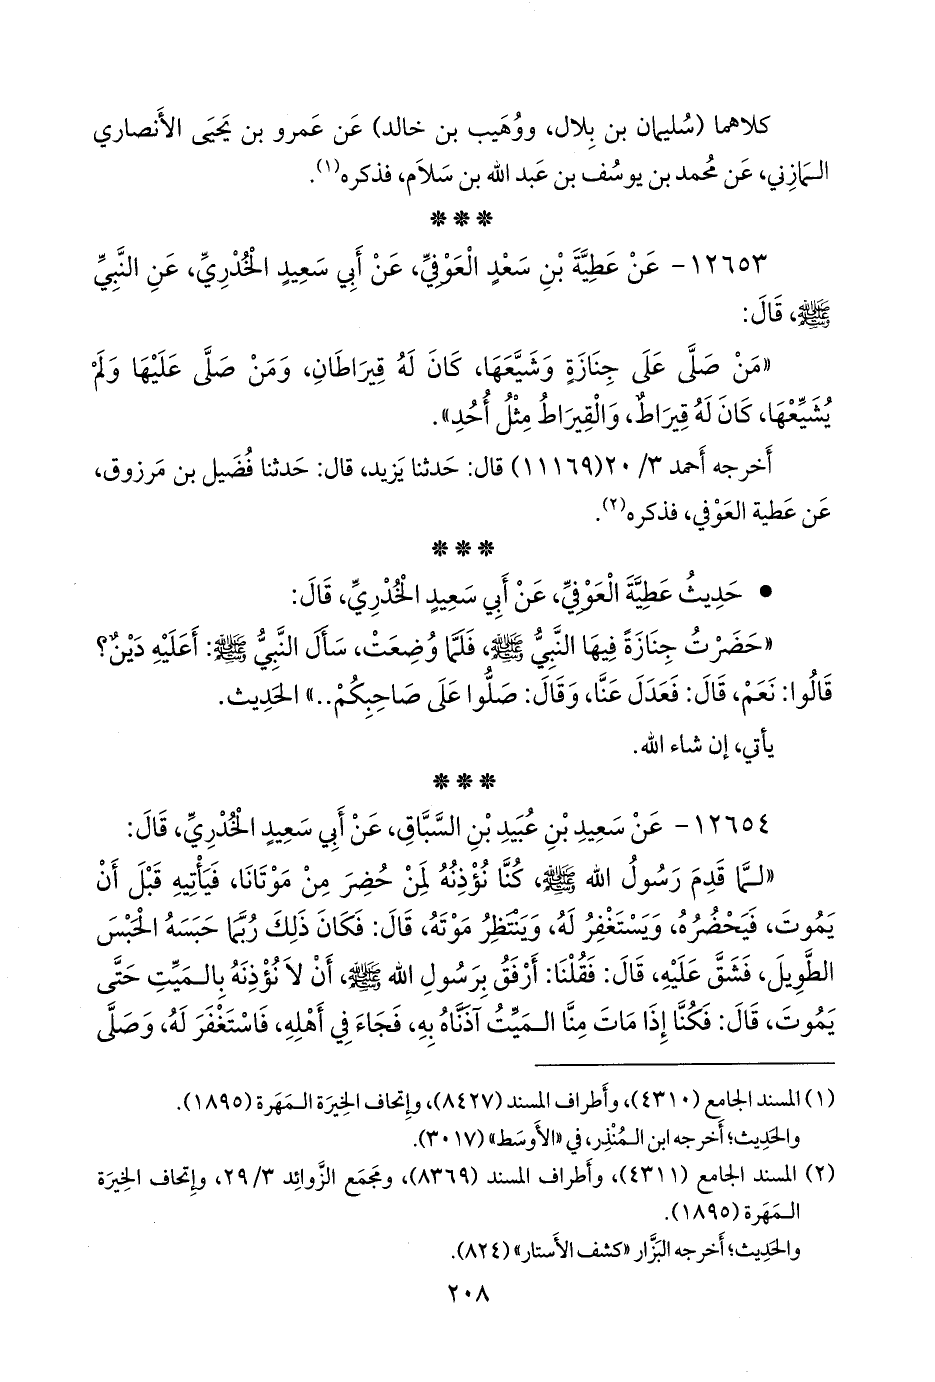 كلاهما (سُليمان بن بِلال، ووُهَيب بن خالد) عَن عَمرو بن يَحيَى الأَنصاري
الـمَازِني، عَن مُحمد بن يوسُف بن عَبد الله بن سَلاَم، فذكره(١).
* * *
١٢٦٥٣- عَنْ عَطِيَّةَ بْنِ سَعْدٍ الْعَوْفِيِّ، عَنْ أَبِي سَعِيدٍ الْخُدْرِيِّ، عَنِ النَّبِيِّ
ﷺ، قَالَ:
«مَنْ صَلَّى عَلَى جِنَازَةٍ وَشَيَّعَهَا، كَانَ لَهُ قِيرَاطَانِ، وَمَنْ صَلَّى عَلَيْهَا وَلَمْ
يُشَيِّعْهَا، كَانَ لَهُ قِيرَاطٌ، وَالْقِيرَاطُ مِثْلُ أُحُدٍ».
أَخرجه أَحمد ٣/ ٢٠(١١١٦٩) قال: حَدثنا يَزيد، قال: حَدثنا فُضَيل بن مَرزوق،
عَن عَطية العَوْفي، فذكره(٢).
* * *
• حَدِيثُ عَطِيَّةَ الْعَوْفِيِّ، عَنْ أَبِي سَعِيدٍ الْخُدْرِيِّ، قَالَ:
«حَضَرْتُ جِنَازَةً فِيهَا النَّبِيُّ ﷺ، فَلَمَّا وُضِعَتْ، سَأَلَ النَّبِيُّ ﷺ: أَعَلَيْهِ دَيْنٌ؟
قَالُوا: نَعَمْ، قَالَ: فَعَدَلَ عَنَّا، وَقَالَ: صَلُّوا عَلَى صَاحِبِكُمْ..» الحَدِيث.
يأتي، إن شاء الله.
* * *
١٢٦٥٤- عَنْ سَعِيدِ بْنِ عُبَيدِ بْنِ السَّبَّاقِ، عَنْ أَبِي سَعِيدٍ الْخُدْرِيِّ، قَالَ:
«لـمَّا قَدِمَ رَسُولُ الله ﷺ، كُنَّا نُؤْذِنُهُ لِمَنْ حُضِرَ مِنْ مَوْتَانَا، فَيَأْتِيهِ قَبْلَ أَنْ
يَمُوتَ، فَيَحْضُرُهُ، وَيَسْتَغْفِرُ لَهُ، وَيَنْتَظِرُ مَوْتَهُ، قَالَ: فَكَانَ ذَلِكَ رُبَّمَا حَبَسَهُ الْحَبْسَ
الطَّوِيلَ، فَشَقَّ عَلَيْهِ، قَالَ: فَقُلْنَا: أَرْفَقُ بِرَسُولِ الله ﷺ، أَنْ لاَ نُؤْذِنَهُ بِالـمَيِّتِ حَتَّى
يَمُوتَ، قَالَ: فَكُنَّا إِذَا مَاتَ مِنَّا الـمَيِّتُ آذَنَّاهُ بِهِ، فَجَاءَ فِي أَهْلِهِ، فَاسْتَغْفَرَ لَهُ، وَصَلَّى
(١) المسند الجامع (٤٣١٠)، وأَطراف المسند (٨٤٢٧)، وإتحاف الخِيرَة الـمَهَرة (١٨٩٥).
والحَدِيث؛ أَخرجه ابن الـمُنْذِر، في «الأَوسَط» (٣٠١٧).
(٢) المسند الجامع (٤٣١١)، وأَطراف المسند (٨٣٦٩)، ومَجمَع الزَّوائِد ٣/ ٢٩، وإتحاف الخِيرَة
الـمَهَرة (١٨٩٥).
والحَدِيث؛ أَخرجه البَزَّار «كشف الأَستار» (٨٢٤).
٢٠٨